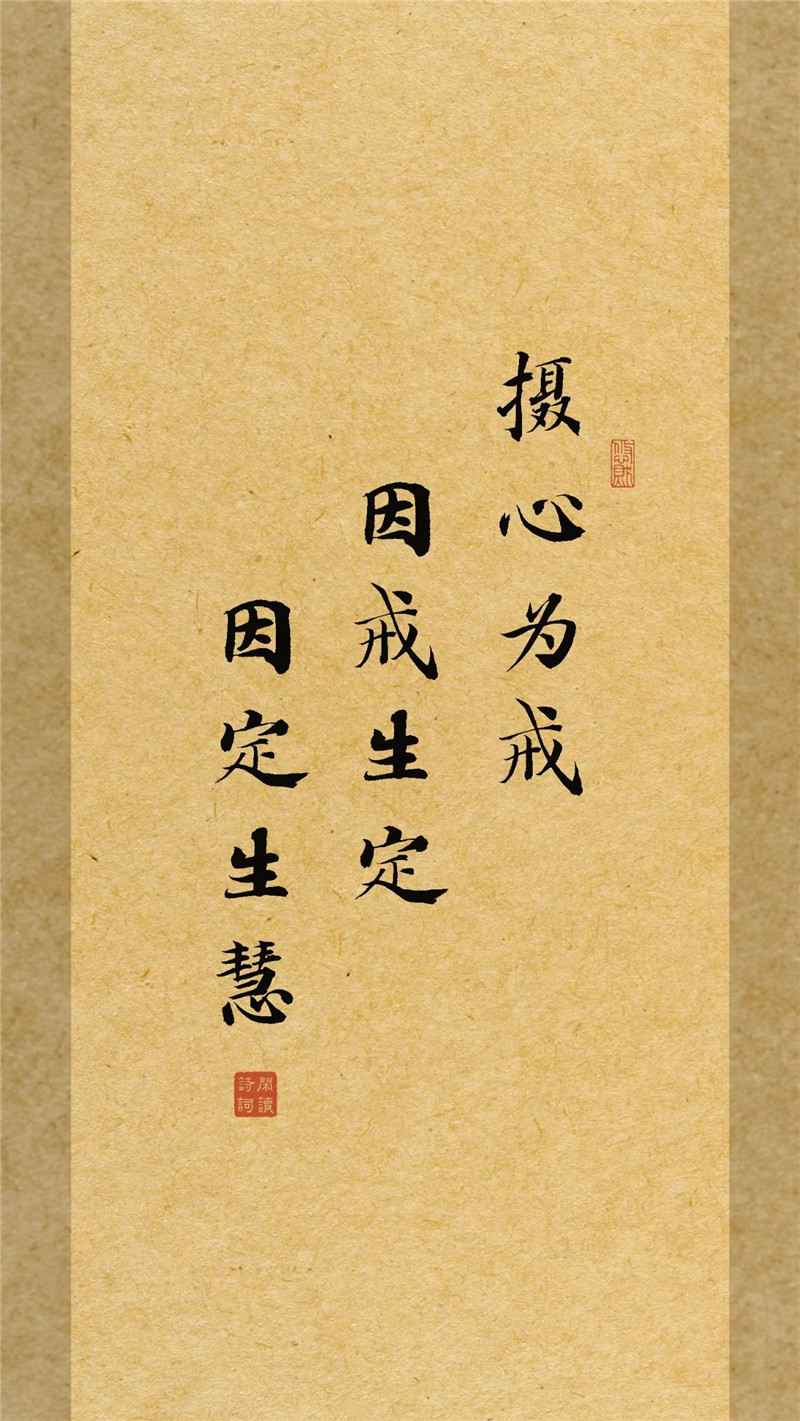 摄心为戒
因戒生定
因定生慧
閑讀
詩詞